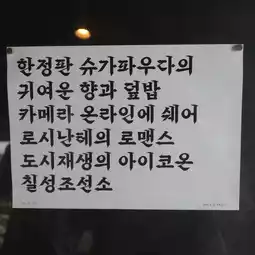 한정판 슈가파우다의
귀여운 향과 덮밥
카메라 온라인에 쉐어
로시난테의 로맨스
도시재생의 아이코온
칠성조선소